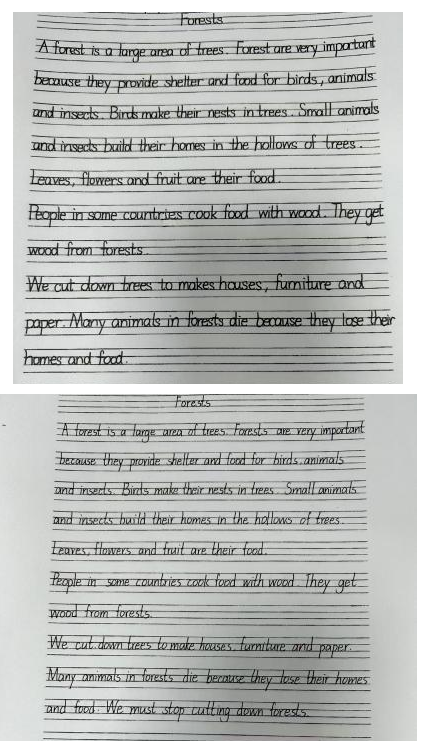 Forests
A forest is a large area of trees. Forest are very important
because they provide shelter and food for birds, animals
and insects. Birds make their nests in trees. Small animals
and insects build their homes in the hollows of trees.
Leaves, flowers and fruit are their food.
People in some countries cook food with wood. They get
wood from forests.
We cut down trees to makes houses, furniture and
paper. Many animals in forests die because they lose their
homes and food.
Forests
A forest is a large area of trees. Forests are very important
because they provide shelter and food for birds, animals
and insects. Birds make their nests in trees. Small animals
and insects build their homes in the hollows of trees.
Leaves, flowers and fruit are their food.
People in some countries cook food with wood. They get
wood from forests.
We cut down trees to make houses, furniture and paper.
Many animals in forests die because they lose their homes
and food. We must stop cutting down forests.